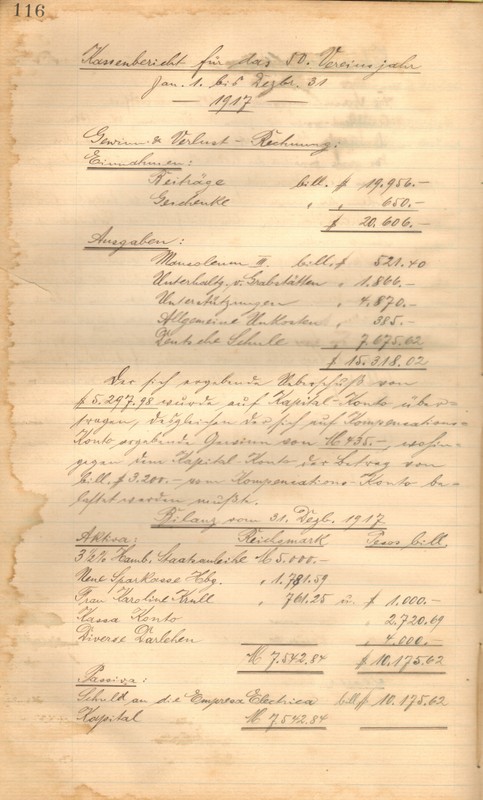 116
Kassenbericht für das 50. Vereinsjahr
Jan. 1. bis Dezbr. 31
— 1917 —
Gewinn- & Verlust-Rechnung:
Einnahmen:
Beiträge bill. $ 19.956.-
Geschenke " " 650.-
$ 20.606.-
Ausgaben:
Mausoleum II bill. $ 521.40
Unterhaltg. v. Grabstätten " 1.866.-
Unterstützungen " 4.870.-
Allgemeine Unkosten " 385.-
Deutsche Schule " 7.675.62
$ 15.318.02
Der sich ergebende Ueberschuß von
$ 5.297.98 wurde auf Kapital-Konto über-
tragen, desgleichen der sich auf Kompensations-
Konto ergebende Gewinn von M 435.-, wohin-
gegen dem Kapital-Konto der Betrag von
bill. $ 3.200.- vom Kompensations-Konto be-
lastet werden mußte.
Bilanz vom 31. Dezb. 1917
Aktiva: Reichsmark Pesos bill.
3½% Hamb. Staatsanleihe M 5.000.-
Neue Sparkasse Hbg. " 1.781.59
Frau Karoline Krull " 761.25 u. $ 1.000.-
Kassa Konto " 2.720.69
Diverse Darlehen " 4.000.-
M 7.542.84 $ 10.175.62
Passiva:
Schuld an die Empresa Electrica bill $ 10.175.62
Kapital M 7.542.84